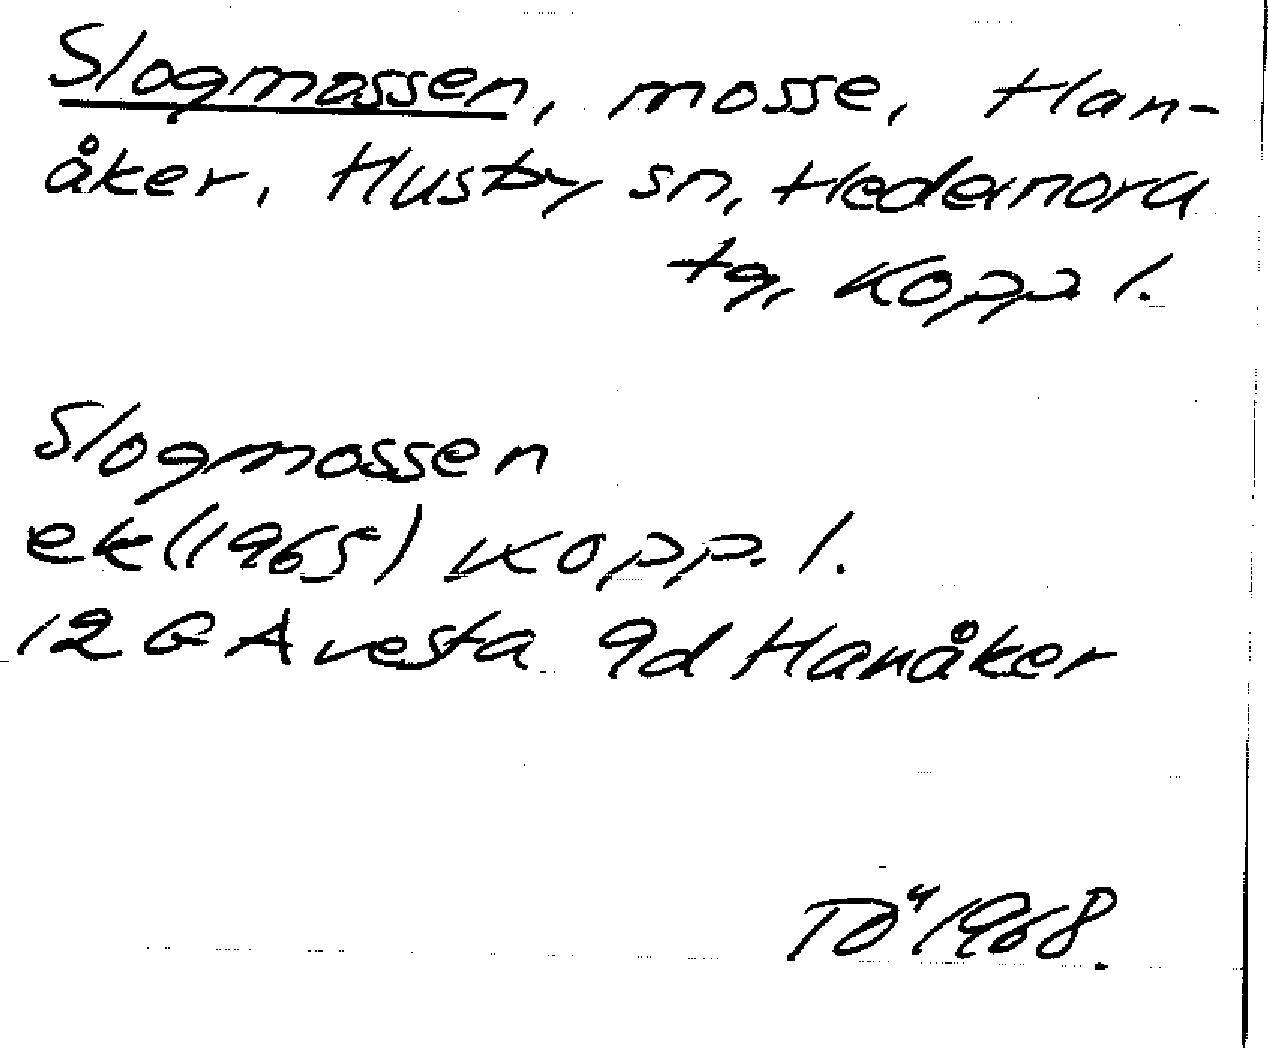 Slogmossen, mosse, Han-
åker, Husby sn, Hedemora
tg, Kopp. l.
Slogmossen
ek (1965) Kopp. l.
12 G Avesta 9d Hanåker
TÖ 1968.